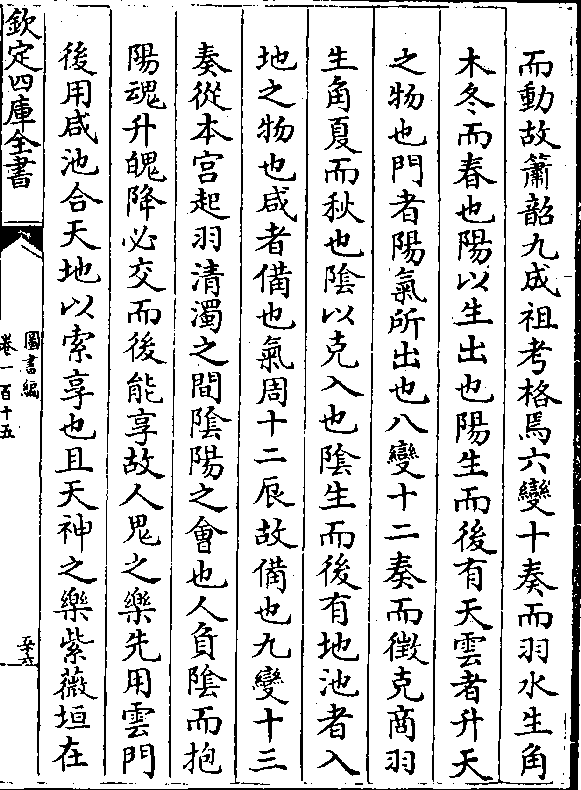 而動故簫韶九成祖考格焉六變十奏而羽水生角
木冬而春也陽以生出也陽生而後有天雲者升天
之物也門者陽氣所出也八變十二奏而徵克商羽
生角夏而秋也陰以克入也陰生而後有地池者入
地之物也咸者備也氣周十二辰故備也九變十三
奏從本宮起羽清濁之間陰陽之會也人負陰而抱
陽魂升魄降必交而後能享故人鬼之樂先用雲門
後用咸池合天地以索享也且天神之樂紫薇垣在
欽定四庫全書
圖書編
卷一百十五
五十六